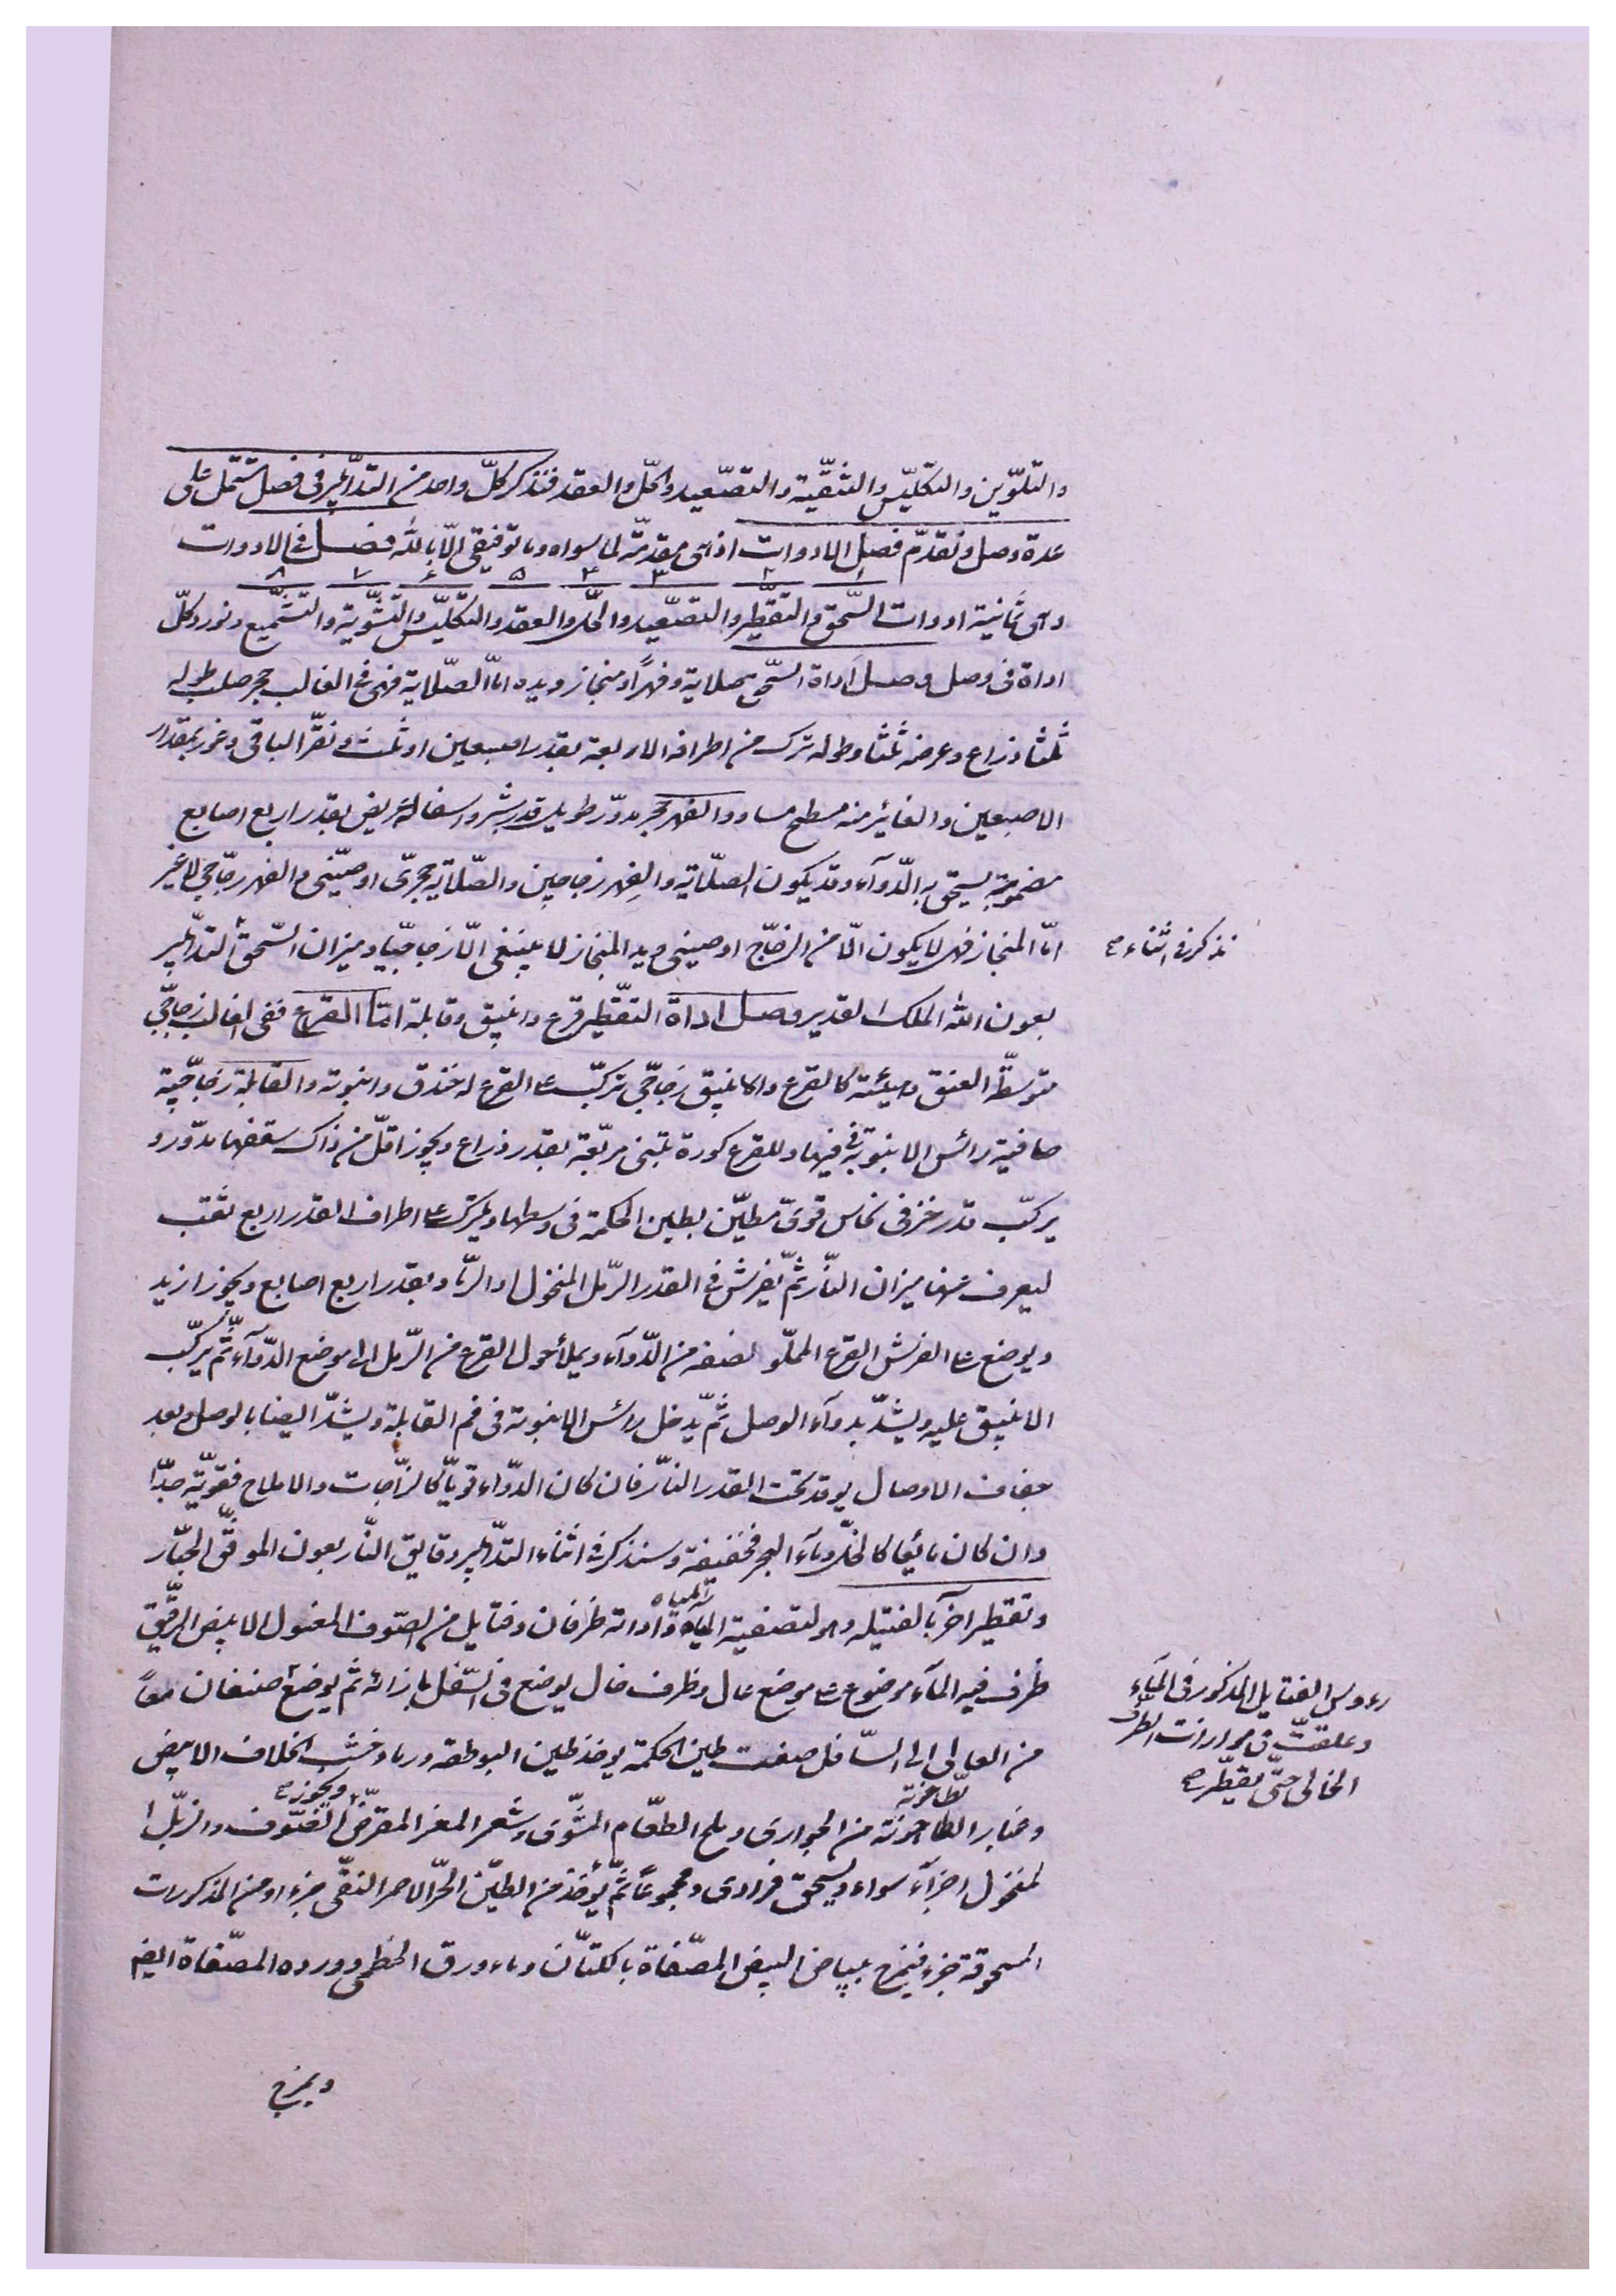 والتلوّين والتكليّس والتنقّية والتصّعيد والحلّ والعقد فنذكر كلّ واحد من التدّابير فى فصل يشتمل على
عدة وصل ونقدّم فصل الادوات اذ هى مقدمّة لما سواه وما توفيقى الّا بالله فصل فى الادوات
١ ٢ ٣ ٤ ٥ ٦ ٧ ٨
وهى ثمانية ادوات السّحق والتقّطير والتصّعيد والحلّ والعقد والتكليّس والتشّوية والتشّميع ونورد كلّ
اداة فى وصل وصل اداة السّحق صلاية وفهرًا ومنحاز ويده امّا الصّلاية فهى فى الغالب حجر صلب طوله
ثلثا ذراع وعرضه ثلثا وطوله ترك من اطرافه الاربعة بقدر اصبعين او ثلث ونقرّ الباقى وغور بمقدار
الاصبعين والغائير منه مسطح مساو والفهر حجر مدوّر طويل قدر شبر واسفاله عريض بقدر اربع اصابع
مضمومة يسحق به الدّوآء وقد يكون الصلّاية والفهر زجاجين والصّلاية حجرىّ او صيّنى والفهر زجّاجى لا غير
امّا المنحاز فهو لا يكون الّا من الزجّاج او صينى ويد المنحاز لا ينبغى الّا زجاجيّا وميزان السّحق التدّابير
نذكر فى اثناء صح
بعون الله الملك القدير وصل اداة التقّطير قرع وانبيق وقابلة امّا القرع ففى الغالب زجّاجىّ
متوسطّ العنق وهيئته كالقرع والانبيق زجّاجىّ تركبّ على القرع له خندق وانبوته والقابلة زجّاجيّة
صافية رائس الانبوته فى فيها وللقرع كورة تبتنى مربّعة بقدر ذراع ويجوز اقلّ من ذاك سقفها مدوّر و
يركبّ قدر خزفى نحاس قوىّ مطيّن بطين الحكمة فى وسطها ويترك على اطراف القدر اربع ثقب
ليعرف منها ميزان النّار ثمّ يفرش فى القدر الرّمل المنخول او الرّماد بقدر اربع اصابع ويجوز ازيد
ويوضع على الفرش القرع المملّو نصفه من الدّوآء ويملأ حول القرع من الرّمل الى موضع الدّوآء ثمّ يركّب
الانبيق عليه ويشدّ بدوآء الوصل ثمّ يّدخل رائس الانبوته فى فم القابلة ويشدّ ايضا بالوصل وبعد
جفاف الاوصال يوقد تحت القدر النّار فان كان الدّواء قويّا كالزّاجات والاملاح فقويّة جدّا
وان كان مائيعا كالخلّ وماء البحر فخفيفة وسنذكر فى اثناء التدّابير دقايق النّار بعون الموفقّ الجبّار
وتقطير اخر بالفتيله وهو لتصفية المياه واداته ظرفان وفتايل من الصّوف المغسول الابيض الرقّيق
المياه
ظرف فيه المآء موضوع على موضع عال وظرف خال يوضع فى السّفل بازائه ثم يوضع صنفان معاً
رءوس الفتايل المذكور فى المآء
وعلقتّ فى موارات الظّرف
الخالى حتّى يقطّر صح
من العالى الى السّافل صفت طين الحكمة يوخذ طين البوطقه ورماد خشب الخلاف الابيض
وغبار الطاحونة من الجوارى وملح الطعّام المشّوى وشعر المعز المقرضّ الصّوف والزبّل ا
طّاحونة
ويجوز صح
لمنخول اجزآء سواء ويسحق فرادى ومجموعاً ثمّ يؤخذ من الطيّن الحرّ الاحمر النقّى جزء ومن المذكورات
المسحوقة جزء فيمزج ببياض البيض المصّفاة بالكتّان وماء ورق الخطمى وورده المصّفاة ايضا
ويمزج